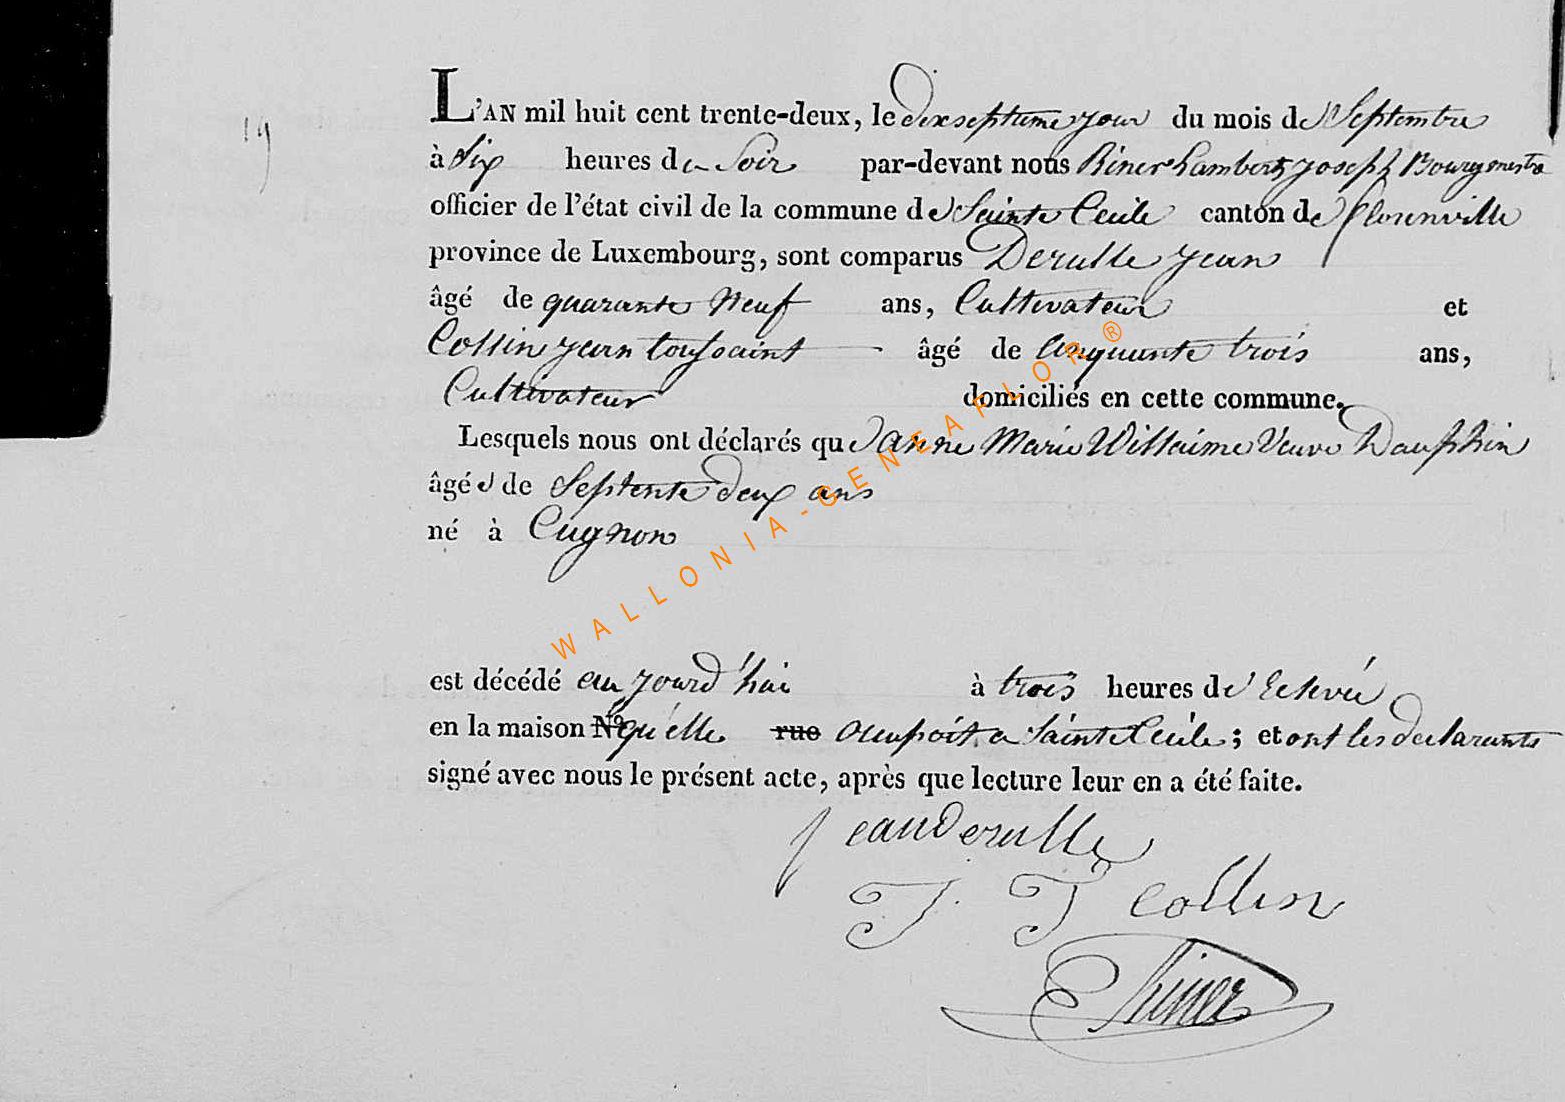 19
L'AN mil huit cent trente-deux, le dixseptieme jour du mois de Septembre
à Six heures du Soir par-devant nous Riner Lambert Joseph Bourgmestre
officier de l'état civil de la commune de Sainte Cecile canton de florenville
province de Luxembourg, sont comparus Derulle jean
âgé de quarante Neuf ans, Cultivateur et
Collin jean toussaint âgé de Cinquante trois ans,
Cultivateur domiciliés en cette commune.
Lesquels nous ont déclarés que anne Marie Willaime Veuve Dauphin
âgée de Septente deux ans
né à Cugnon
est décédé au jourd'hui à trois heures de relevée
en la maison N° qu'elle rue occupoit a Sainte Cécile; et ont les declarants
signé avec nous le présent acte, après que lecture leur en a été faite.
jean Derulle
J. T Collin
Riner
WALLONIA-GENEAFLOR®